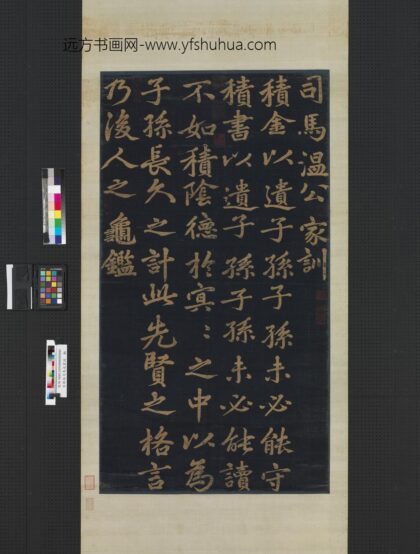 远方书画网-www.yfshuhua.com
司馬溫公家訓
積金以遺子孫子孫未必能守
積書以遺子孫子孫未必能讀
不如積陰德於冥〻之中以為
子孫長久之計此先賢之格言
乃後人之龜鑑